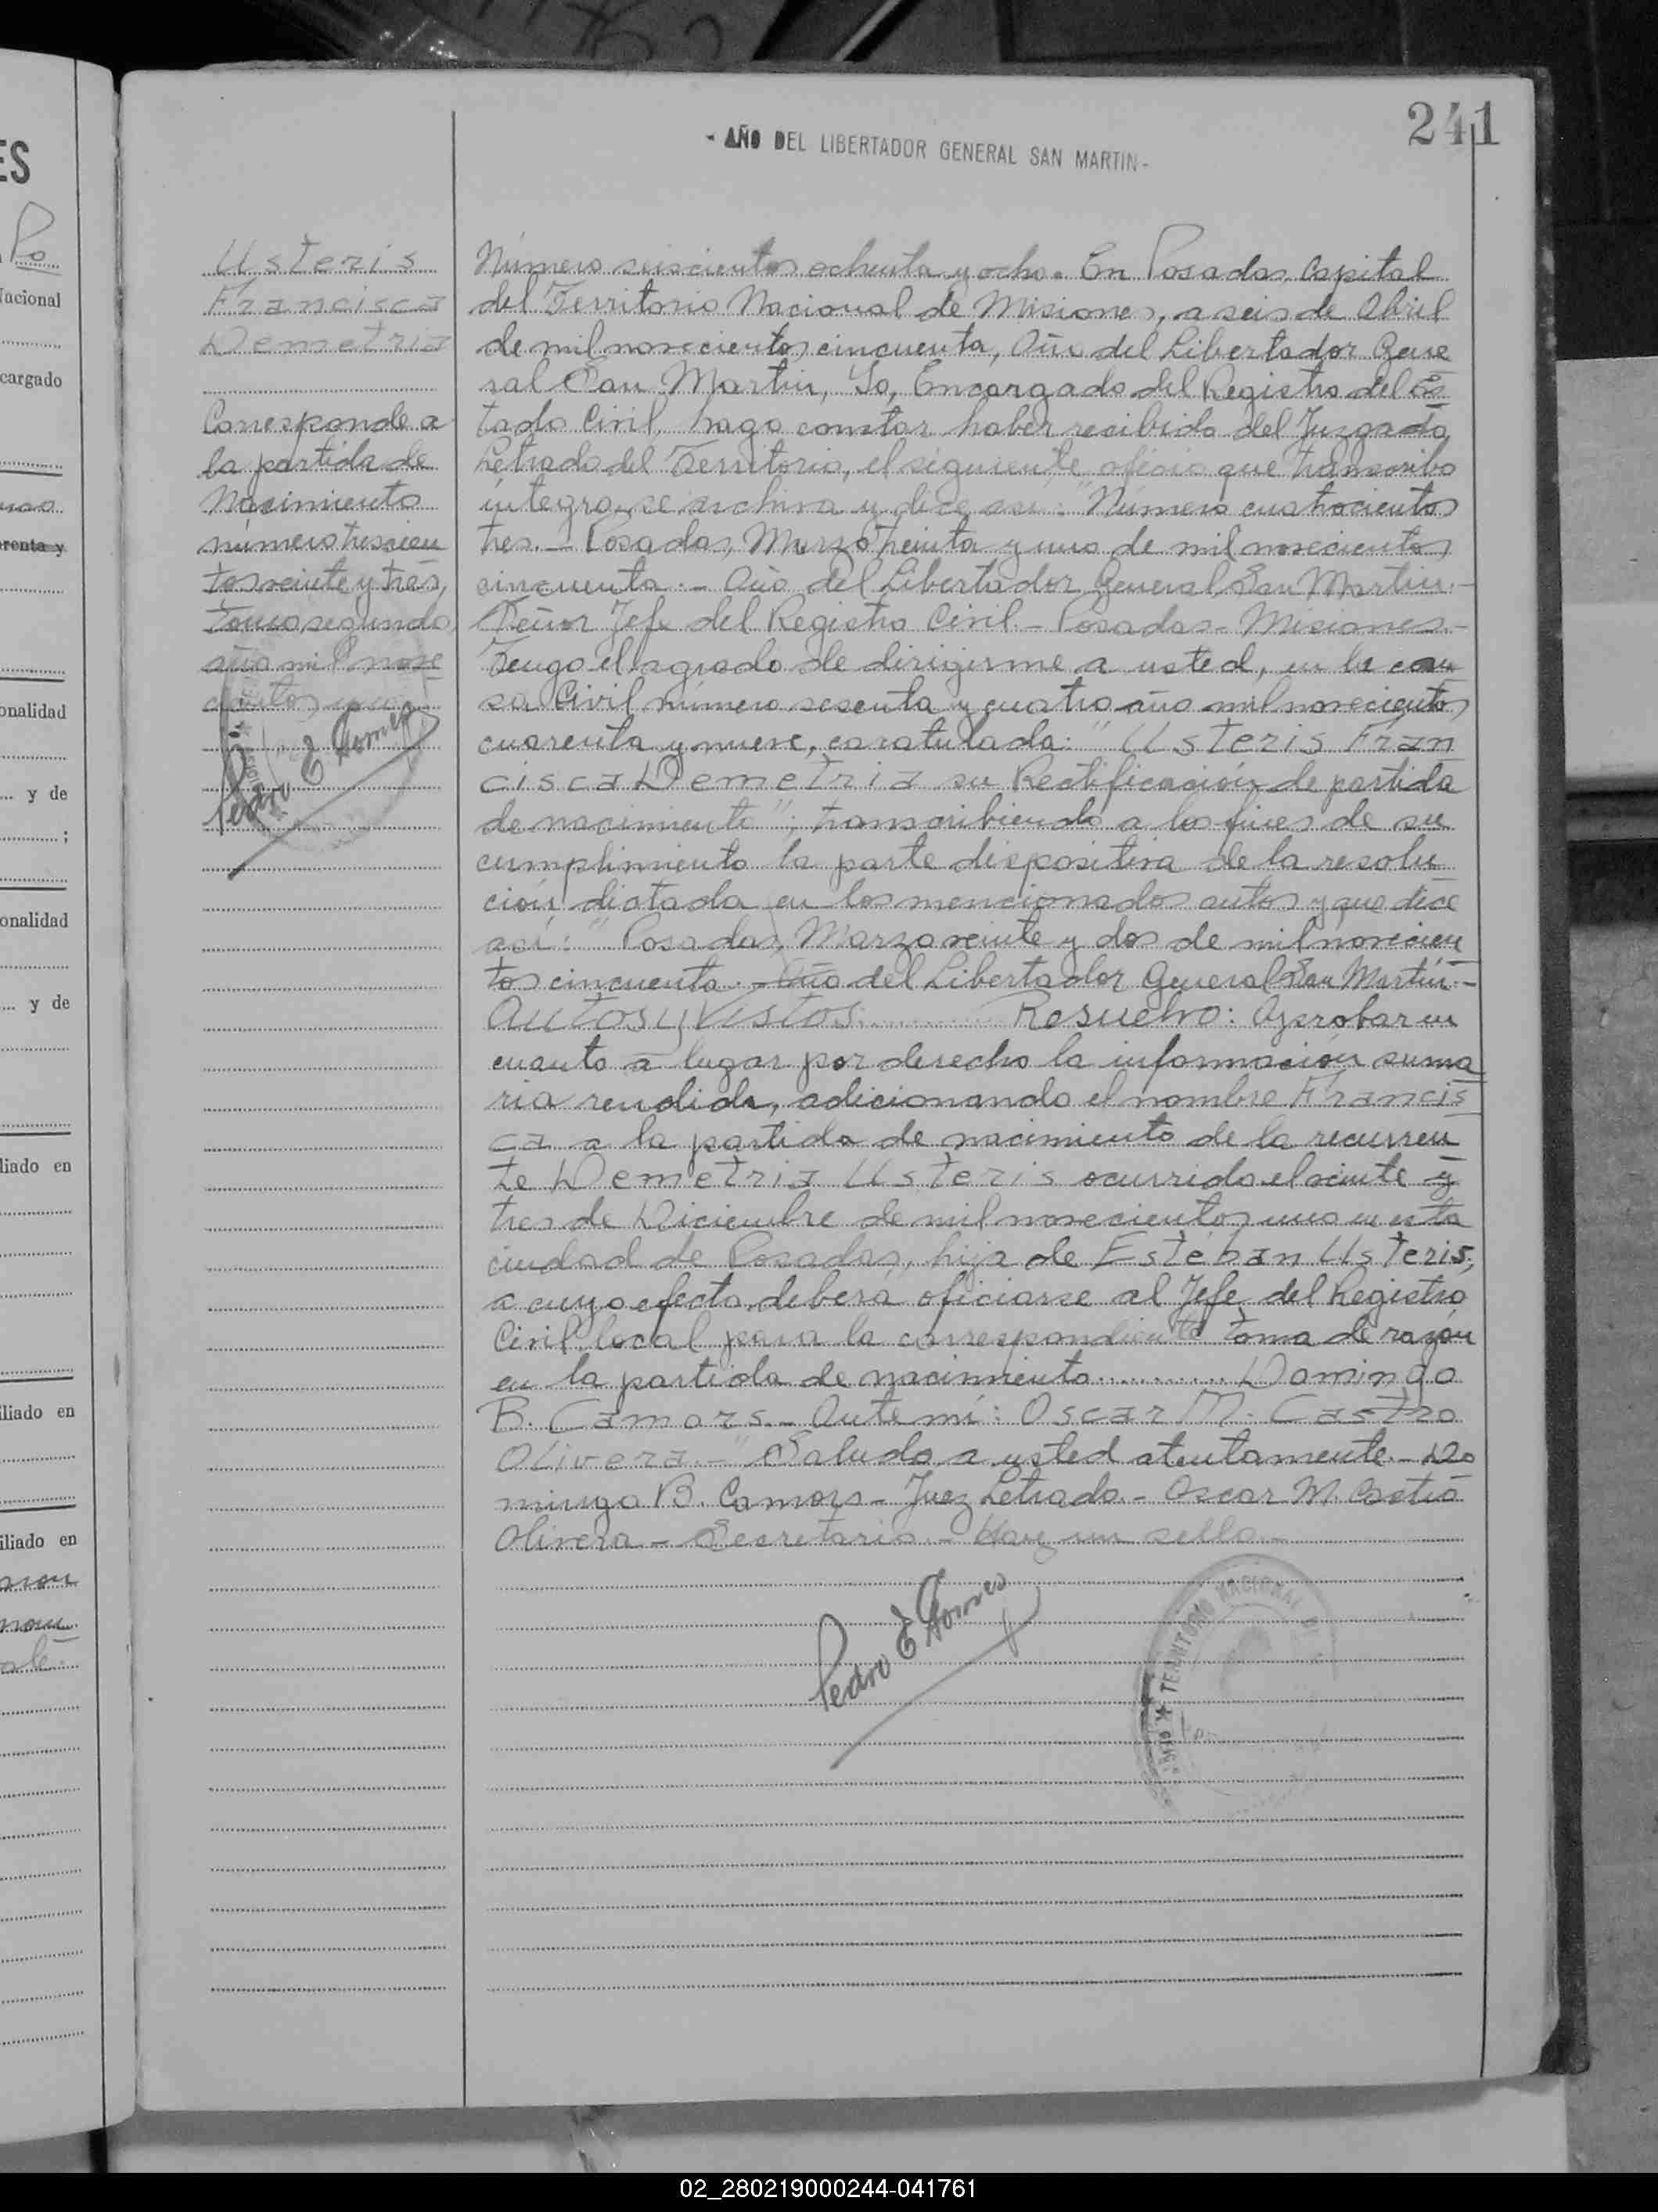 241
- AÑO DEL LIBERTADOR GENERAL SAN MARTIN -
Usteris
Francisca
Demetria
Corresponde a
la partida de
Nacimiento
número trescien
tos veinte y tres,
tomo segundo,
año mil nove
cientos uno
Pedro E. Gomez
Número seiscientos ochenta y ocho. En Posadas, Capital
del Territorio Nacional de Misiones, a seis de Abril
de mil novecientos cincuenta, Año del Libertador Gene
ral San Martin, Yo, Encargado del Registro del Es
tado Civil, hago constar haber recibido del Juzgado
Letrado del Territorio, el siguiente oficio que transcribo
integro, se archiva y dice así: "Número cuatrocientos
tres. - Posadas, Marzo treinta y uno de mil novecientos
cincuenta. - Año del Libertador General San Martin. -
Señor Jefe del Registro Civil - Posadas - Misiones. -
Tengo el agrado de dirigirme a usted, en la cau
sa Civil número sesenta y cuatro año mil novecientos
cuarenta y nueve, caratulada: "Usteris Fran
cisca Demetria su Rectificación de partida
de nacimiento"; transcribiendo a los fines de su
cumplimiento la parte dispositiva de la resolu
ción dictada en los mencionados autos y que dice
así: "Posadas, Marzo veinte y dos de mil novecien
tos cincuenta. - Año del Libertador General San Martin. -
Autos y Vistos ............ Resuelvo: Aprobar en
cuanto a lugar por derecho la información suma
ria rendida, adicionando el nombre Francis
ca a la partida de nacimiento de la recurren
te Demetria Usteris ocurrido el veinte y
tres de Diciembre de mil novecientos uno en esta
ciudad de Posadas, hija de Estéban Usteris,
a cuyo efecto, deberá oficiarse al Jefe del Registro
Civil local para la correspondiente toma de razón
en la partida de nacimiento........... Domingo
B. Camors. - Ante mí: Oscar M. Castro
Olivera. - " Saludo a usted atentamente. - Do
mingo B. Camors - Juez Letrado. - Oscar M. Castro
Olivera - Secretario. - Hay un sello. -
Pedro E Gomez
TERRITORIO NACIONAL
02_280219000244-041761